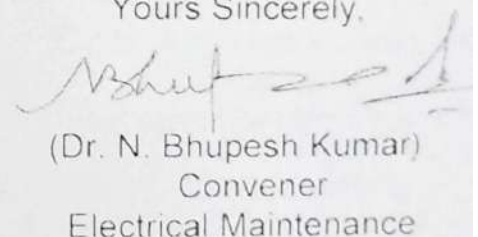 Yours Sincerely,
NBhup
(Dr. N. Bhupesh Kumar)
Convener
Electrical Maintenance